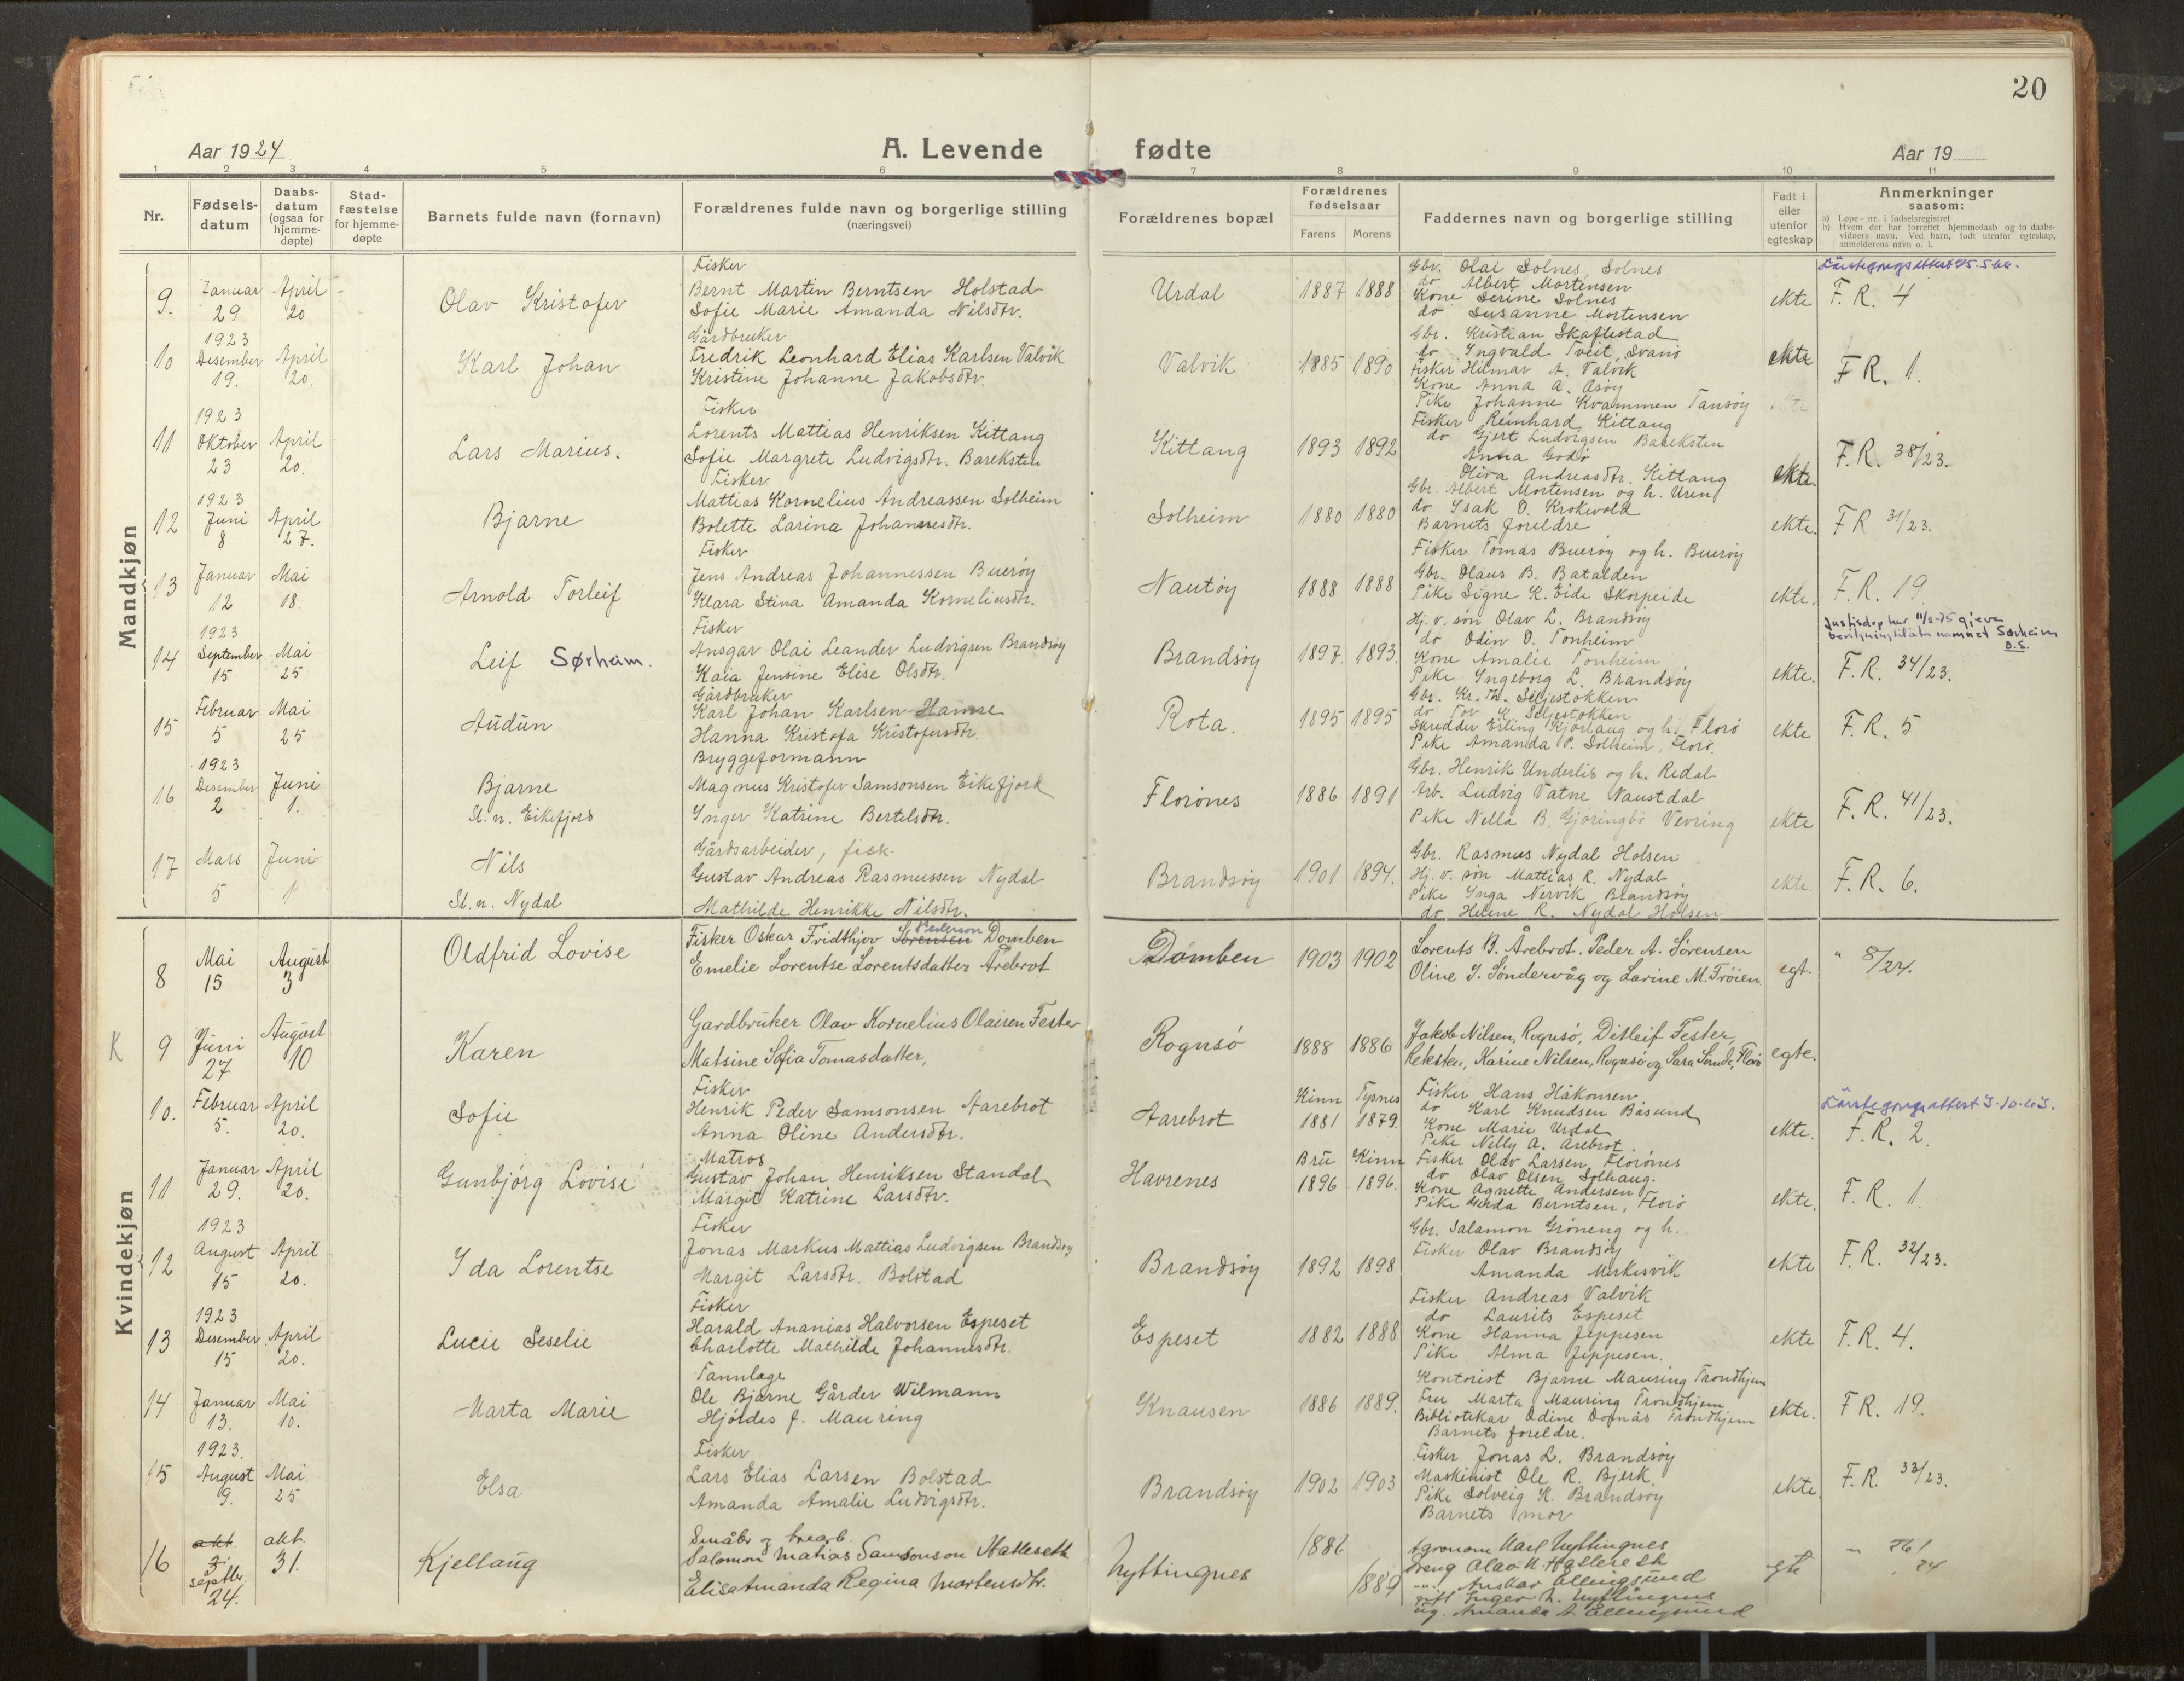 20
Aar 1924
A. Levende fødte
Aar 19
1 2 3 4 5 6 7 8 9 10 11
Nr.
Fødsels-datum
Daabs-datum (ogsaa for hjemme-døpte)
Stad-fæstelse for hjemme-døpte
Barnets fulde navn (fornavn)
Forældrenes fulde navn og borgerlige stilling (næringsvei)
Forældrenes bopæl
Forældrenes fødselsaar
Farens Morens
Faddernes navn og borgerlige stilling
Født i eller utenfor egteskap
Anmerkninger saasom:
a) Løpe-nr. i fødselsregistret
b) Hvem der har forrettet hjemmedaab og to daabs-vidners navn. Ved barn, født utenfor egteskap, anmelderens navn o. l.
Mandkjøn
9. Januar 29 April 20
Olav Kristofer
Fisker
Bernt Martin Berntsen Holstad
Sofie Marie Amanda Nilsdtr.
Urdal 1887 1888
Gbr. Olai Solnes, Solnes
do Albert Mortensen
Kone Serine Solnes
do Susanne Mortensen
ekte F. R. 4
10 1923 Desember 19. April 20.
Karl Johan
Gårdbruker
Fredrik Leonhard Elias Karlsen Valvik
Kristine Johanne Jakobsdtr.
Valvik 1885 1890
Gbr. Kristian Skaftestad
do Ingvald Tveit, Svanö
Fisker Hilmar A. Valvik
Kone Anna A. Åsöy
Pike Johanne Kvammen Tansöy
ekte F R. 1.
11 1923 Oktober 23 April 20.
Lars Marius.
Fisker
Lorents Mattias Henriksen Kittang
Sofie Margrete Ludvigsdtr. Bareksten
Kittang 1893 1892
Fisker Reinhard Kittang
do Gjert Ludvigsen Bareksten
Anna Godö
Oliva Andreasdtr. Kittang
ekte. F. R. 38/23.
12 1923 Juni 8 April 27.
Bjarne
Fisker
Mattias Kornelius Andreassen Solheim
Bolette Larina Johannesdtr.
Solheim 1880 1880
Gbr. Albert Mortensen og h. Uren
do Isak O. Krokevold
Barnets foreldre
ekte. F R 31/23.
13 Januar 12 Mai 18.
Arnold Torleif
Fisker
Jens Andreas Johannessen Bueröy
Klara Stina Amanda Korneliusdtr.
Nautöy 1888 1888
Fisker Tomas Bueröy og h. Bueröy
Gbr. Olaus B. Batalden
Pike Signe K. Eide Skorpeide
ekte. F. R. 19.
14 1923 September 15 Mai 25
Leif Sørheim.
Fisker
Ansgar Olai Leander Ludvigsen Brandsöy
Kaia Jensine Elise Olsdtr.
Brandsöy 1897. 1893.
Hj. v. søn Olav L. Brandsöy
do Odin O. Tonheim
Kone Amalie Tonheim
Pike Ingeborg L. Brandsöy
ekte. F. R. 34/23.
namnet Sørheim
15 Februar 5 Mai 25
Audun
Gårdbruker
Karl Johan Karlsen Hamre
Hanna Kristofa Kristofersdtr.
Rota. 1895 1895
Gbr. Kr. Th. Seljestokken
do Tov K. Seljestokken
Skredder Erling Kjörlaug og h. Florö
Pike Amanda P. Solheim, Florö.
ekte F. R. 5
16 1923 Desember 2 Juni 1.
Bjarne
Sl. n. Eikefjord
Bryggeformann
Magnus Kristofer Samsonsen Eikefjord
Inger Katrine Bertelsdtr.
Florönes 1886 1891
Gbr. Henrik Underlid og h. Redal
Arb. Ludvig Vatne Naustdal
Pike Nella B. Gjöringbö Vevring
ekte F. R. 41/23.
17 Mars 5 Juni 1
Nils
Sl. n. Nydal
Gårdsarbeider, fisk.
Gustav Andreas Rasmussen Nydal
Mathilde Henrikke Nilsdtr.
Brandsöy 1901 1894.
Gbr. Rasmus Nydal Holsen
Hj. v. søn Mattias R. Nydal
Pike Inga Nervik Brandsöy
do Helene R. Nydal Holsen
ekte. F. R. 6.
Kvindekjøn
8 Mai 15 August 3
Oldfrid Lovise
Fisker Oskar Fridthjov Sørensen Pederson Domben
Emelie Lorentse Lorentsdatter Årebrot
Domben 1903 1902
Lorents B. Årebrot. Peder A. Sørensen
Oline J. Söndervåg og Larine M. Tröien
egt. " 8/24.
K 9 Juni 27 August 10
Karen
Gardbruker Olav Kornelius Olaisen Fester
Matsine Sofia Tomasdatter,
Rognsö 1888 1886
Jakob Nilsen, Rognsö, Ditleif Fester,
Reksten, Karine Nilsen, Rognsö og Sara Sunde, Florö
egte.
10. Februar 5. April 20.
Sofie
Fisker
Henrik Peder Samsonsen Aarebrot
Anna Oline Andersdtr.
Aarebrot Kinn 1881 Tysnes 1879.
Fisker Hans Håkonsen
do Karl Knudsen Båsund
Kone Marie Urdal
Pike Nelly A. Årebrot
ekte. F. R. 2.
11 Januar 29. April 20.
Gunbjörg Lovise
Matros
Gustav Johan Henriksen Standal
Margit Katrine Larsdtr.
Havrenes Bru 1896 Kinn 1896.
Fisker Olav Larsen Florönes
do Olav Olsen Solhaug.
Kone Agnette Andersen
Pike Gerda Berntsen, Florö
ekte. F. R. 1.
12 1923 August 15 April 20.
Ida Lorentse
Fisker
Jonas Markus Mattias Ludvigsen Brandsöy
Margit Larsdtr. Bolstad
Brandsöy 1892 1898
Gbr. Salamon Gröneng og h.
Fisker Olav Brandsöy
Amanda Merkesvik
ekte F. R. 32/23.
13 1923 Desember 15 April 20.
Lucie Seselie
Fisker
Harald Ananias Halvorsen Espeset
Charlotte Mathilde Johannesdtr.
Espeset 1882 1888
Fisker Andreas Valvik
do Laurits Espeset
Kone Hanna Jeppesen
Pike Alma Jeppesen.
ekte F. R. 4.
14 Januar 13. Mai 10.
Marta Marie
Tannlæge
Ole Bjarne Gårder Wilmann
Hjördes f. Mauring
Knausen 1886 1889.
Kontorist Bjarne Mauring Trondhjem
Fru Marta Mauring Trondhjem
Bibliotekar Odine Domås Trondhjem
Barnets foreldre.
ekte. F R. 19.
15 1923. August 9. Mai 25
Elsa
Fisker
Lars Elias Larsen Bolstad
Amanda Amalie Ludvigsdtr.
Brandsöy 1902 1903
Fisker Jonas L. Brandsöy
Maskinist Ole R. Bjerk
Pike Solveig K. Brandsöy
Barnets mor
ekte. F. R. 33/23.
16 septbr. 24. okt. 31.
Kjellaug
Småbr og
Salomon Matias Samsonson Hatleseth
Elisa Amanda Regina Mortensdtr.
Nyttingnes 1886 1889
Agronom Karl Nyttingnes
Dreng Olav H. Hatleseth
Anskar Ellingsund
gift Inger N. Nyttingnes
ug. Amanda A. Ellingsund
egte